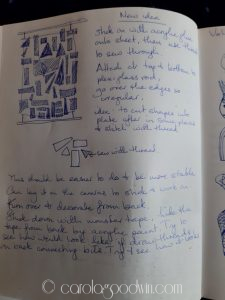 New idea
stick on with acrylic glue
onto sheet, then use thread
to sew through.
Attach at top & bottom to
plexi-glass rod,
go over the edges so
irregular,
idea to cut shapes into
plate after in some places
& stitch with thread
sew with thread
This should be easier to do & be more stable
Can lay it on the canvas to stick & work on
turn over to decorate from back.
Stick down with monster tape. Take the
tape from back by acrylic paint. Try to
see how would look like if draw threads
on back connecting bits. Try & see how it looks
© carolagoodwin.com